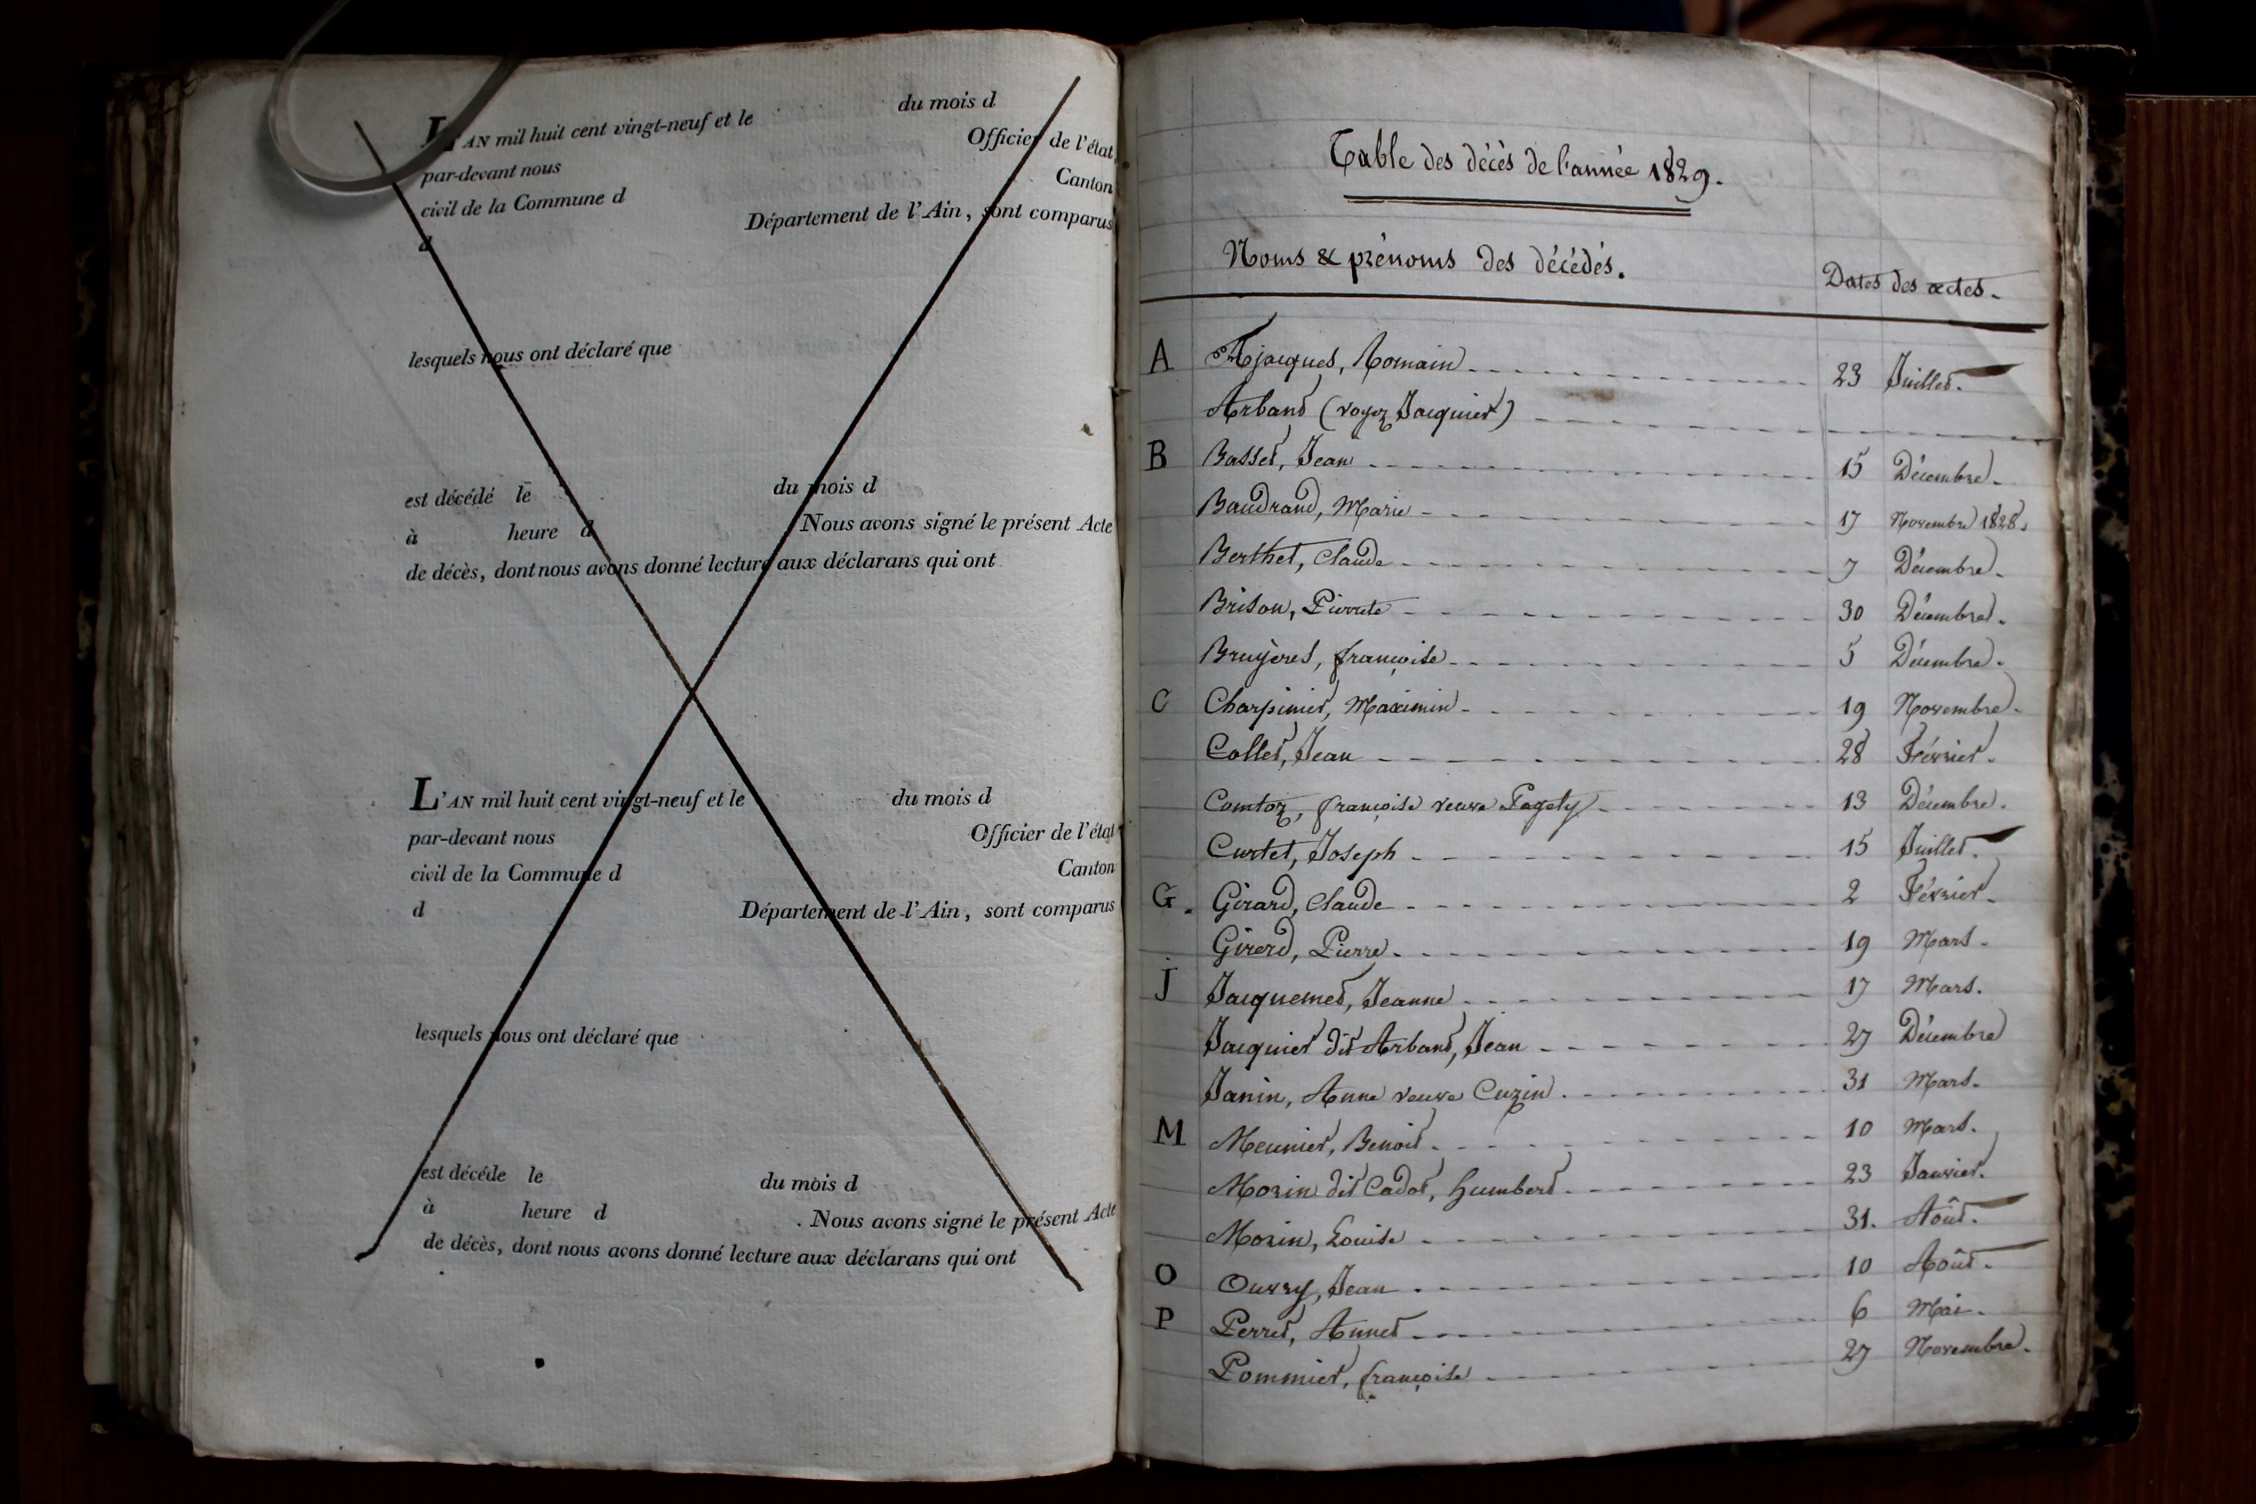 L'AN mil huit cent vingt-neuf et le du mois d
par-devant nous Officier de l'état
civil de la Commune d Canton
d Département de l'Ain, sont comparus
lesquels nous ont déclaré que
est décédé le du mois d
à heure d Nous avons signé le présent Acte
de décès, dont nous avons donné lecture aux déclarans qui ont
L'AN mil huit cent vingt-neuf et le du mois d
par-devant nous Officier de l'état
civil de la Commune d Canton
d Département de l'Ain, sont comparus
lesquels nous ont déclaré que
est décéde le du mois d
à heure d . Nous avons signé le présent Acte
de décès, dont nous avons donné lecture aux déclarans qui ont
Table des décès de l'année 1829.
Noms & prénoms des décédés. Dates des actes.
A jacques, Romain 23 Juillet.
Arband (voyez Jacquier)
B Basset, Jean 15 Décembre.
Baudrand, Marie 17 Novembre 1828.
Berthet, Claude 7 Décembre.
Brison, Pierrete 30 Décembre.
Bruyères, françoise 5 Décembre.
C Charpinier, Maximin 19 Novembre.
Collet, Jean 28 Février.
Comtoz, françoise veuve Pagety 13 Décembre.
Curtet, Joseph 15 Juillet.
G. Girard, Claude 2 Février.
Girerd, Pierre 19 Mars.
j Jacquemet, Jeanne 17 Mars.
Jacquier dit Arband, Jean 27 Décembre
Janin, Anne veuve Cuzin 31 Mars.
M Meunier, Benoit 10 Mars.
Morin dit Cadot, humbert 23 Janvier.
Morin, Louise 31. Août.
O Ouvry, Jean 10 Août.
P Perret, Annet 6 Mai.
Pommier, françoise 27 Novembre.